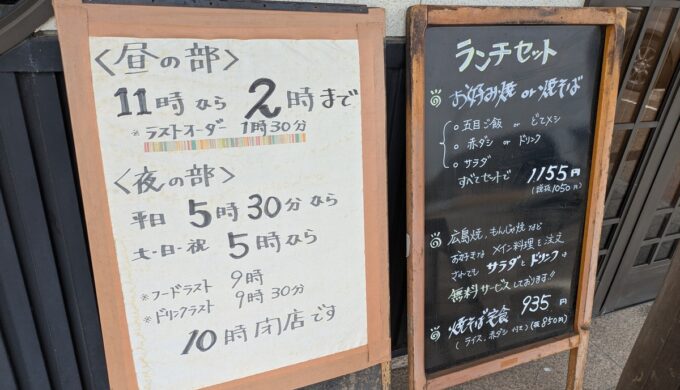 〈昼の部〉
11時なら2時まで
※ラストオーダー 1時30分
〈夜の部〉
平日 5時30分なら
土・日・祝 5時なら
※フードラスト 9時
※ドリンクラスト 9時30分
10時閉店です
ランチセット
お好み焼 or 焼そば
○五目ご飯 or どてメシ
○赤ダシ or ドリンク
○サラダ
すべてセットで 1155円
(税抜1050円)
広島焼、もんじゃ焼など
お好きなメイン料理を注文
されても サラダとドリンクは
無料サービスしております!!
焼そば定食 935円
(ライス、赤ダシ付き) (税850円)